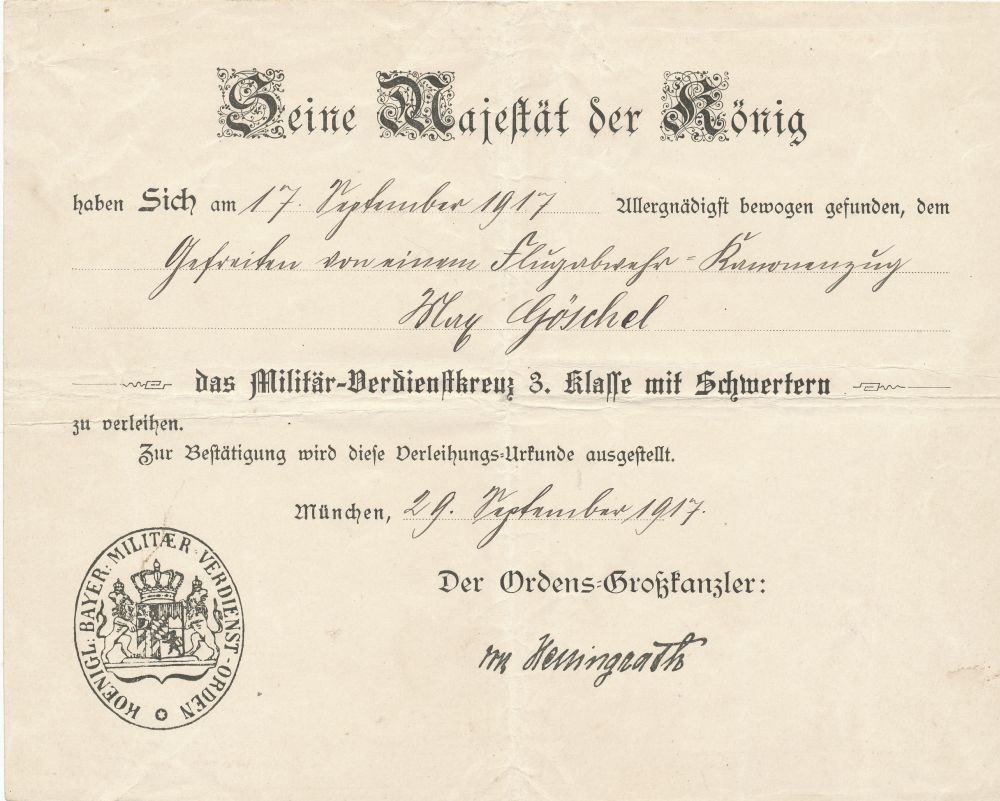 Seine Majestät der König
haben Sich am 17. September 1917 Allergnädigst bewogen gefunden, dem
Gefreiten von einem Flugabwehr=Kanonenzug
Max Göschel
das Militär-Verdienstkreuz 3. Klasse mit Schwertern
zu verleihen.
Zur Bestätigung wird diese Verleihungs=Urkunde ausgestellt.
München, 29. September 1917.
Der Ordens=Großkanzler:
KOENIGL: BAYER: MILITÆR-VERDIENST-ORDEN